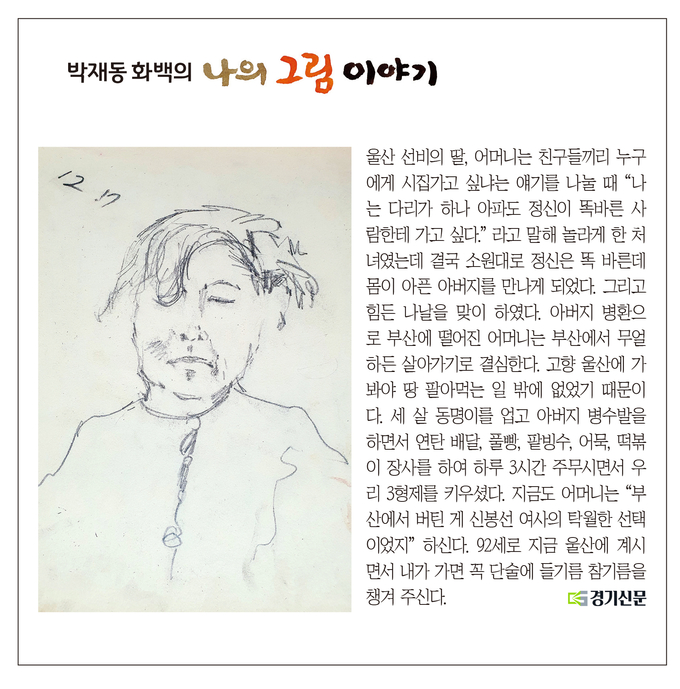 박재동 화백의 나의 그림 이야기
12. 17
울산 선비의 딸, 어머니는 친구들끼리 누구
에게 시집가고 싶냐는 얘기를 나눌 때 “나
는 다리가 하나 아파도 정신이 똑바른 사
람한테 가고 싶다.” 라고 말해 놀라게 한 처
녀였는데 결국 소원대로 정신은 똑 바른데
몸이 아픈 아버지를 만나게 되었다. 그리고
힘든 나날을 맞이 하였다. 아버지 병환으
로 부산에 떨어진 어머니는 부산에서 무얼
하든 살아가기로 결심한다. 고향 울산에 가
봐야 땅 팔아먹는 일 밖에 없었기 때문이
다. 세 살 동명이를 업고 아버지 병수발을
하면서 연탄 배달, 풀빵, 팥빙수, 어묵, 떡볶
이 장사를 하여 하루 3시간 주무시면서 우
리 3형제를 키우셨다. 지금도 어머니는 “부
산에서 버틴 게 신봉선 여사의 탁월한 선택
이었지” 하신다. 92세로 지금 울산에 계시
면서 내가 가면 꼭 단술에 들기름 참기름을
챙겨 주신다.
경기신문